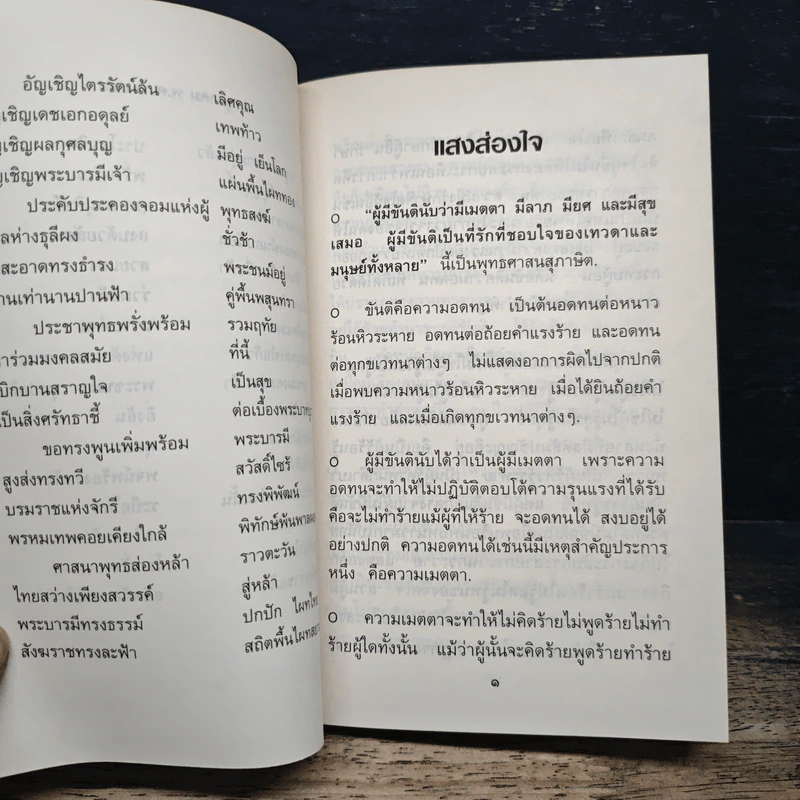 อัญเชิญไตรรัตน์ล้น เลิศคุณ
เชิญเดชเอกอดุลย์ เทพท้าว
เชิญผลกุศลบุญ มีอยู่ เย็นโลก
เชิญพระบารมีเจ้า แผ่นพื้นไผททอง
ประคับประคองจอมแห่งผู้ พุทธสงฆ์
ห่างธุลีผง ชั่วช้า
สะอาดทรงธำรง พระชนม์อยู่
เท่านานปานฟ้า คู่พื้นพสุนทรา
ประชาพุทธพรั่งพร้อม รวมฤทัย
ร่วมมงคลสมัย ที่นี้
เบิกบานสราญใจ เป็นสุข
เป็นสิ่งศรัทธาชี้ ต่อเบื้องพระบาท
ขอทรงพูนเพิ่มพร้อม พระบารมี
สูงส่งทรงทวี สวัสดิ์ไซร้
บรมราชแห่งจักรี ทรงพิพัฒน์
พรหมเทพคอยเคียงใกล้ พิทักษ์พ้นพาล
ศาสนาพุทธส่องหล้า ราวตะวัน
ไทยสว่างเพียงสวรรค์ สู่หล้า
พระบารมีทรงธรรม์ ปกปัก ไผทไทย
สังฆราชทรงละฟ้า สถิตพื้นไผท
แสงส่องใจ
๐ “ผู้มีขันตินับว่ามีเมตตา มีลาภ มียศ และมีสุข
เสมอ ผู้มีขันติเป็นที่รักที่ชอบใจของเทวดาและ
มนุษย์ทั้งหลาย” นี้เป็นพุทธศาสนสุภาษิต.
๐ ขันติคือความอดทน เป็นต้นอดทนต่อหนาว
ร้อนหิวระหาย อดทนต่อถ้อยคำแรงร้าย และอดทน
ต่อทุกขเวทนาต่างๆ ไม่แสดงอาการผิดไปจากปกติ
เมื่อพบความหนาวร้อนหิวระหาย เมื่อได้ยินถ้อยคำ
แรงร้าย และเมื่อเกิดทุกขเวทนาต่างๆ.
๐ ผู้มีขันตินับได้ว่าเป็นผู้มีเมตตา เพราะความ
อดทนจะทำให้ไม่ปฏิบัติตอบโต้ความรุนแรงที่ได้รับ
คือจะไม่ทำร้ายแม้ผู้ที่ให้ร้าย จะอดทนได้ สงบอยู่ได้
อย่างปกติ ความอดทนได้เช่นนี้มีเหตุสำคัญประการ
หนึ่ง คือความเมตตา.
๐ ความเมตตาจะทำให้ไม่คิดร้ายไม่พูดร้ายไม่ทำ
ร้ายผู้ใดทั้งนั้น แม้ว่าผู้นั้นจะคิดร้ายพูดร้ายทำร้าย
๑